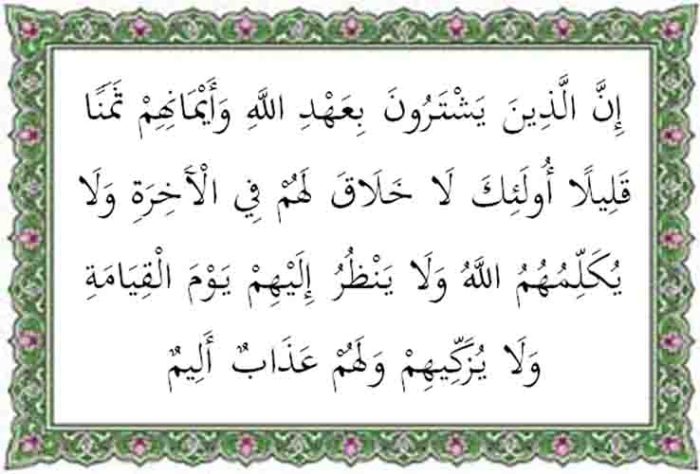 إِنَّ الَّذِينَ يَشْتَرُونَ بِعَهْدِ اللَّهِ وَأَيْمَانِهِمْ ثَمَنًا
قَلِيلًا أُولَئِكَ لَا خَلَاقَ لَهُمْ فِي الْآَخِرَةِ وَلَا
يُكَلِّمُهُمُ اللَّهُ وَلَا يَنْظُرُ إِلَيْهِمْ يَوْمَ الْقِيَامَةِ
وَلَا يُزَكِّيهِمْ وَلَهُمْ عَذَابٌ أَلِيمٌ